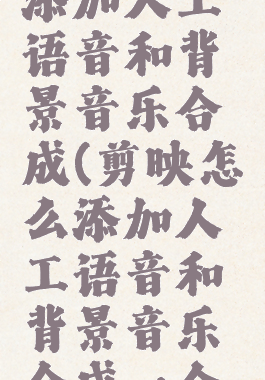 添加人工
语音和背
景音乐合
成(剪映怎
么添加人
工语音和
背景音乐
合成